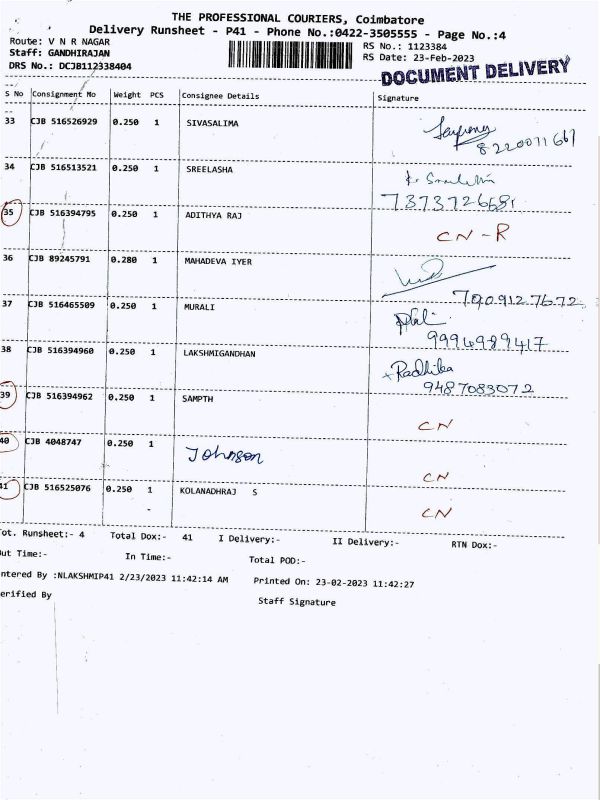 THE PROFESSIONAL COURIERS, Coimbatore
Delivery Runsheet - P41 - Phone No.:0422-3505555 - Page No.:4
Route: V N R NAGAR
Staff: GANDHIRAJAN
DRS No.: DCJB112338404
RS No.: 1123384
RS Date: 23-Feb-2023
DOCUMENT DELIVERY
S No Consignment No Weight PCS Consignee Details Signature
33 CJB 516526929 0.250 1 SIVASALIMA
8220071661
34 CJB 516513521 0.250 1 SREELASHA
7373726681
35 CJB 516394795 0.250 1 ADITHYA RAJ CN-R
36 CJB 89245791 0.280 1 MAHADEVA IYER
7909127672
37 CJB 516465509 0.250 1 MURALI
9994989417
38 CJB 516394960 0.250 1 LAKSHMIGANDHAN Radhika
9487083072
39 CJB 516394962 0.250 1 SAMPTH CN
40 CJB 4048747 0.250 1 Johnson CN
41 CJB 516525076 0.250 1 KOLANADHRAJ S CN
ot. Runsheet:- 4 Total Dox:- 41 I Delivery:- II Delivery:- RTN Dox:-
ut Time:- In Time:- Total POD:-
ntered By :NLAKSHMIP41 2/23/2023 11:42:14 AM Printed On: 23-02-2023 11:42:27
erified By Staff Signature